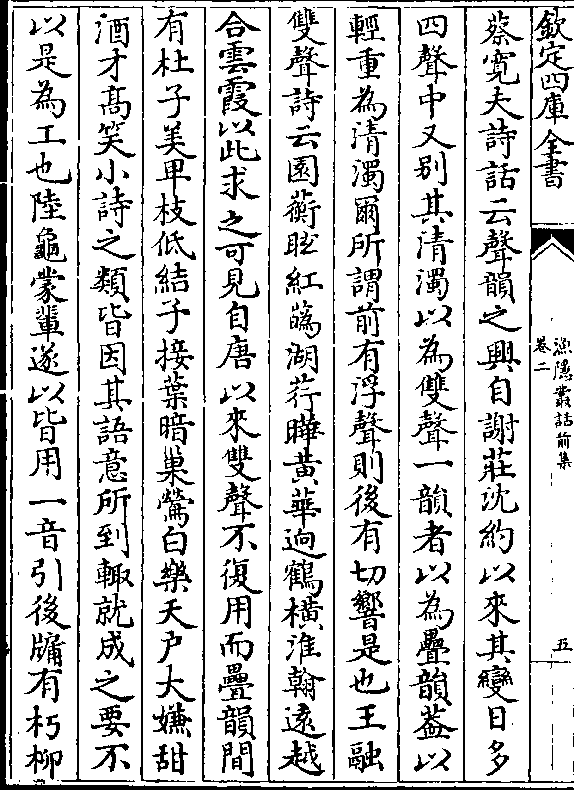 欽定四庫全書
漁隱叢話前集
卷二
五
蔡寛夫詩話云聲韻之興自謝莊沈約以來其變日多
四聲中又别其清濁以為雙聲一韻者以為疊韻葢以
輕重為清濁爾所謂前有浮聲則後有切響是也王融
雙聲詩云園蘅眩紅蘤湖荇曄黄華迥鶴横淮翰遠越
合雲霞以此求之可見自唐以來雙聲不復用而疊韻間
有杜子美甲枝低結子接葉暗巢鶯白樂天户大嫌甜
酒才髙笑小詩之類皆因其語意所到輙就成之要不
以是為工也陸龜蒙輩遂以皆用一音引後牗有朽柳